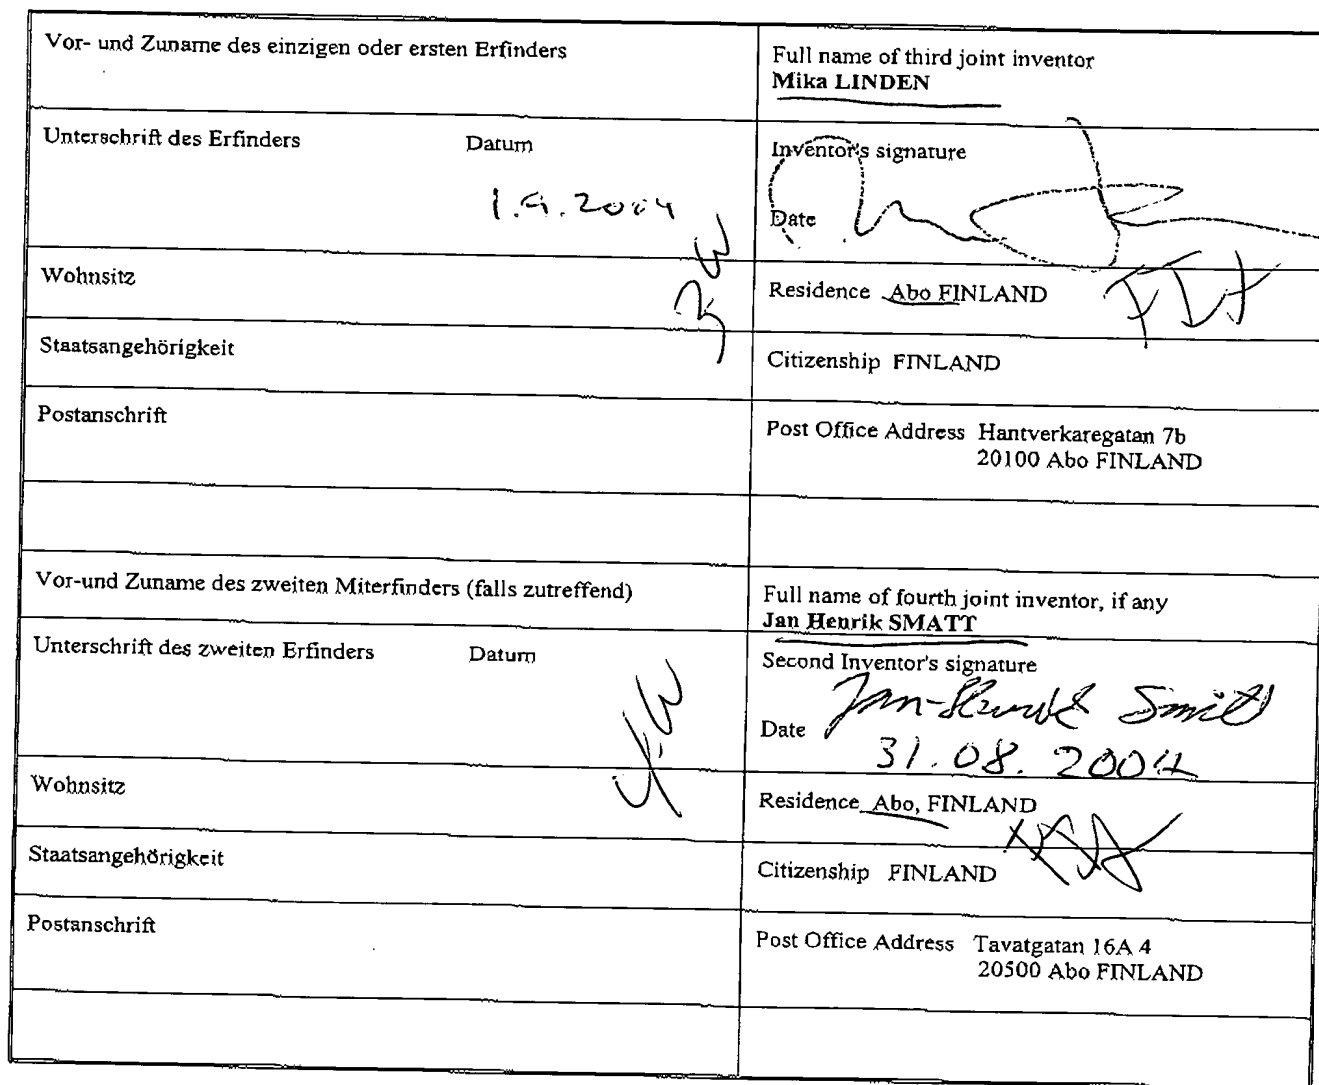 Vor- und Zuname des einzigen oder ersten Erfinders
Full name of third joint inventor
Mika LINDEN
Unterschrift des Erfinders Datum
1.9.2004
Inventor's signature
Date
Wohnsitz
Residence Abo FINLAND
Staatsangehörigkeit
Citizenship FINLAND
Postanschrift
Post Office Address Hantverkaregatan 7b
20100 Abo FINLAND
Vor-und Zuname des zweiten Miterfinders (falls zutreffend)
Full name of fourth joint inventor, if any
Jan Henrik SMATT
Unterschrift des zweiten Erfinders Datum
Second Inventor's signature
Jan-Henrik Smått
Date
31.08.2004
Wohnsitz
Residence Abo, FINLAND
Staatsangehörigkeit
Citizenship FINLAND
Postanschrift
Post Office Address Tavatgatan 16A 4
20500 Abo FINLAND